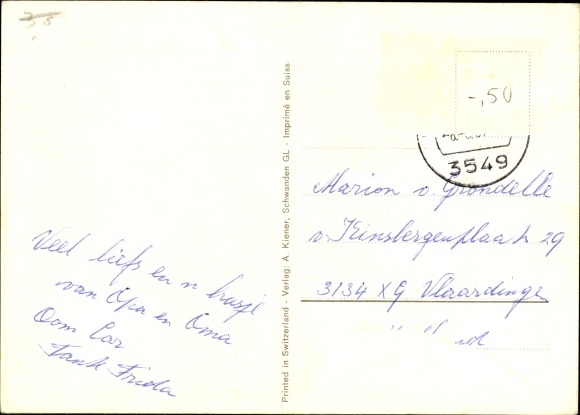 -,50
3549
Printed in Switzerland - Verlag: A. Kiener, Schwanden GL - Imprimé en Suiss
Marion v. Grondelle
v. Kinsbergenplaats 29
3134 XG Vlaardingen
" "
Veel liefs en 'n kusje
van Opa en Oma
Oom Cor
Tante Frieda